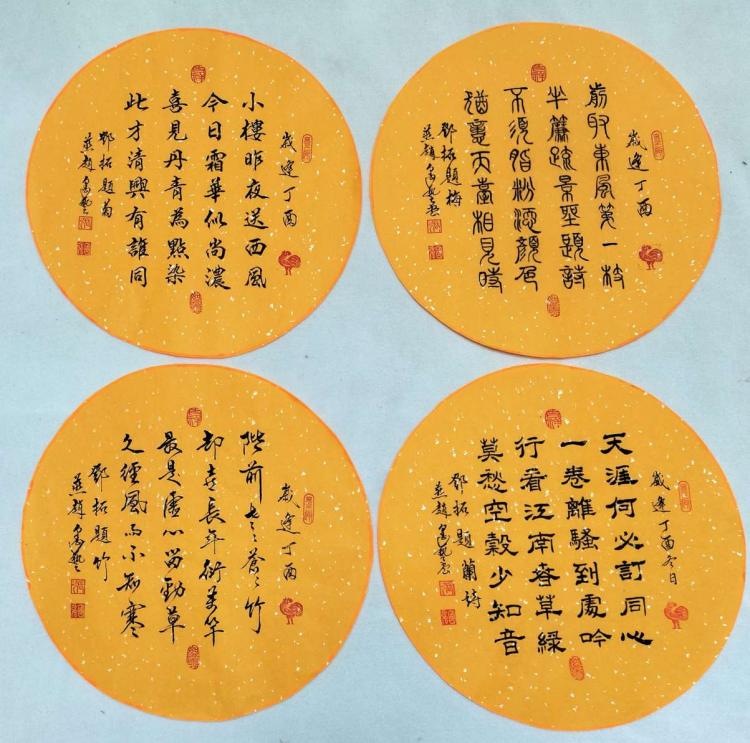 歲逢丁酉
小樓昨夜送西風
今日霜華似尚濃
喜見丹青為點染
此才清興有誰同
鄧拓題菊
燕趙
歲逢丁酉
剪取東風第一枝
半簾疏景坐題詩
不須脂粉添顏色
猶憶天臺相見時
鄧拓題梅
燕趙
歲逢丁酉
階前老〻蒼〻竹
却喜長年衍萬竿
最是虛心留勁草
久經風雨不知寒
鄧拓題竹
燕趙
歲逢丁酉冬日
天涯何必訂同心
一卷離騷到處吟
行看江南春草綠
莫愁空穀少知音
鄧拓題蘭詩
燕趙